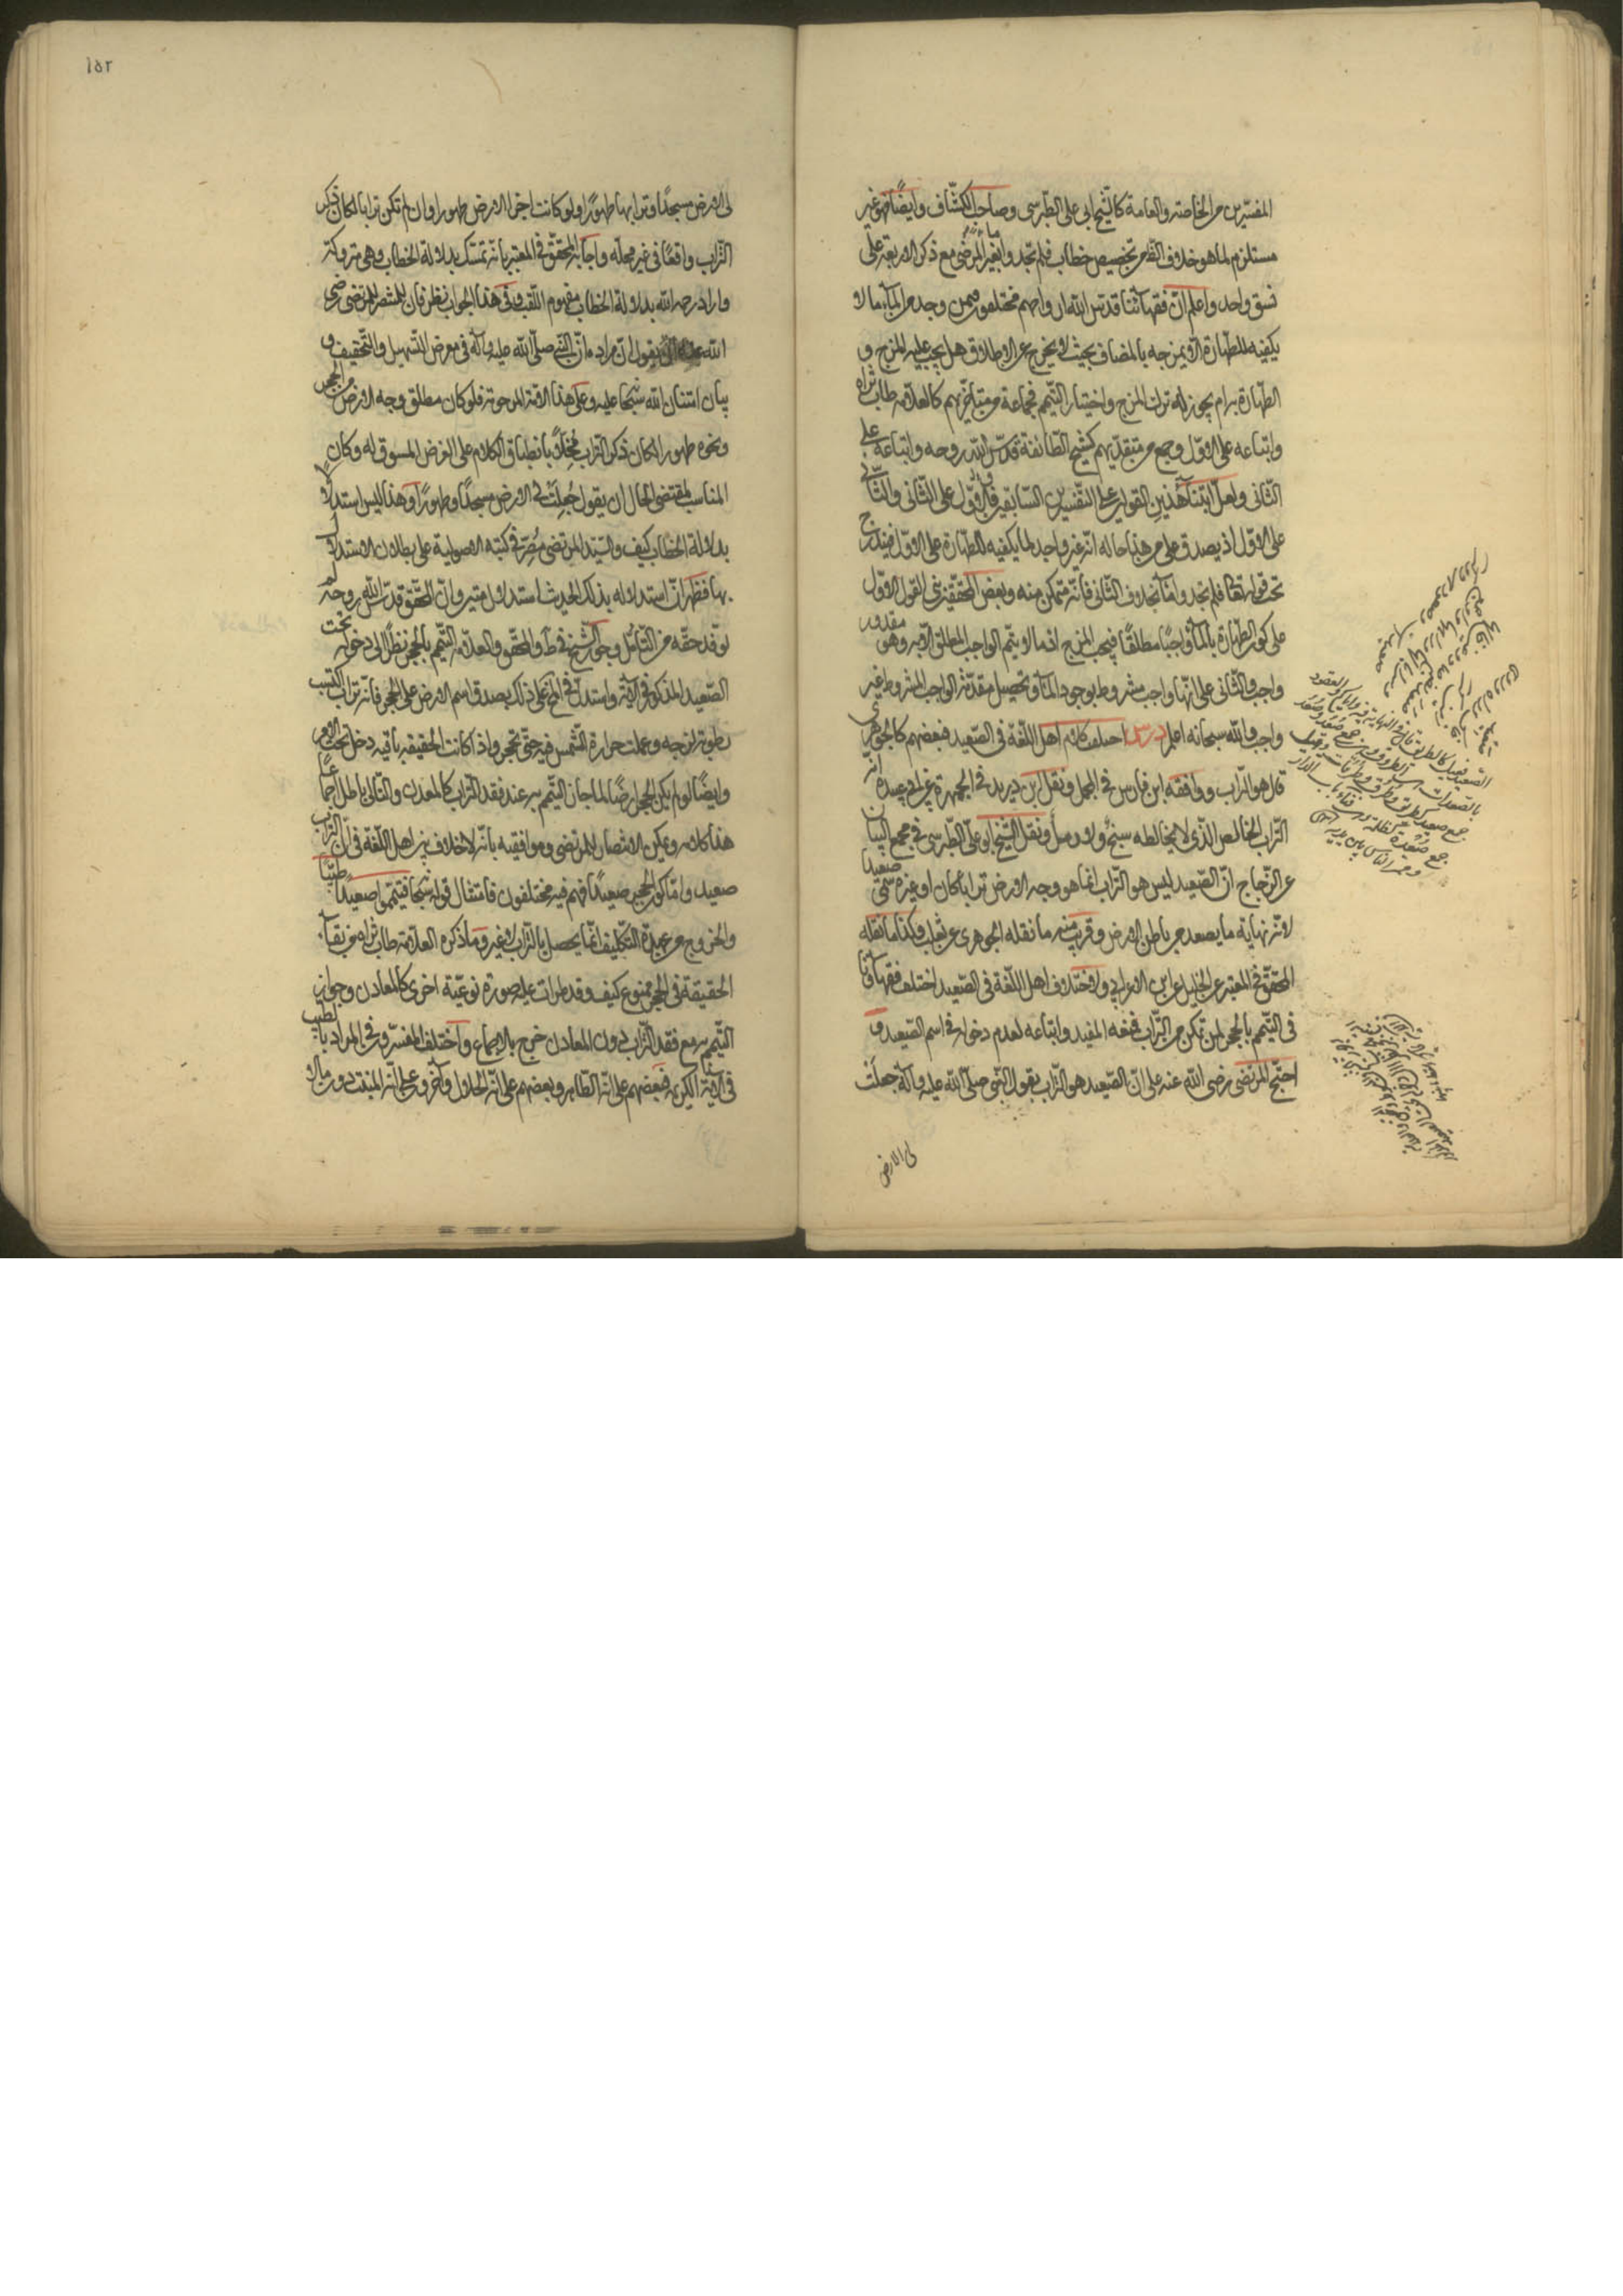 المفسّرين من الخاصّة والعامة كالشيخ ابي علي الطبرسي وصاحب الكشّاف وايضًا فهو غير
مستلزم لما هو خلاف الظاهر من تخصيص خطاب فلم تجدوا ماء بغير المرضى مع ذكر الاربعة على
نسق واحد واعلم انّ فقهائنا قدس الله ارواحهم مختلفون فيمن وجد من الماء ما لا
يكفيه للطهارة الا بمزجه بالمضاف بحيث لا يخرج عن الاطلاق هل يجب عليه المزج و
الطهارة به ام يجوز له ترك المزج واختيار التيمم فجماعة من متاخّريهم كالعلامة طاب ثراه
واتباعه على الاوّل وجمع من متقدّميهم كشيخ الطائفة قدّس الله روحه واتباعه على
الثاني ولعلّ ابتناء هذين القولين على التفسيرين السابقين فالاوّل على الثاني والثاني
على الاوّل اذ يصدق على من هذا حاله انّه غير واجد لما يكفيه للطهارة على الاوّل فيندرج
تحت قوله تعالى فلم تجدوا ماء بخلاف الثاني فانّه متمكن منه وبعض المحققين بنى القول الاوّل
على كون الطهارة بالماء واجبًا مطلقًا فيجب المزج اذ ما لا يتمّ الواجب المطلق الا به وهو مقدور
واجب والثاني على انّها واجب مشروط بوجود الماء وتحصيل مقدّمة الواجب المشروط غير
واجب والله سبحانه اعلم درس اختلف كلام اهل اللّغة في الصّعيد فبعضهم كالجوهري
قال هو التراب ووافقه ابن فارس في المجمل ونقل ابن دريد في الجمهرة عن ابي عبيدة انّه
التراب الخالص الّذي لا يخالطه سبخ ولا رمل ونقل الشيخ ابو علي الطبرسي في مجمع البيان
عن الزجاج انّ الصّعيد ليس هو التراب انما هو وجه الارض ترابا كان او غيره سمّي صعيدا
لانّه نهاية ما يصعد من باطن الارض وقريب منه ما نقله الجوهري عن ثعلب وكذا ما نقله
المحقق في المعتبر عن الخليل عن ابن الاعرابي ولاختلاف اهل اللّغة في الصّعيد اختلف فقهاؤنا
في التيمم بالحجر لمن تمكن من التراب فمنعه المفيد واتباعه لعدم دخوله في اسم الصّعيد و
احتج المرتضى رضي الله عنه على انّ الصّعيد هو التراب بقول النبي صلى الله عليه وآله جعلت
لي الارض
١٥٢
لي الارض مسجدًا وترابها طهورًا ولو كانت اجزاء الارض طهورا وان لم تكن ترابا لكان ذكر
التراب واقعًا في غير محلّه واجاب المحقق في المعتبر بانّه تمسّك بدلالة الخطاب وهي متروكة
واراد رحمه الله بدلالة الخطاب مفهوم اللقب وفي هذا الجواب نظر فان للمنتصر للمرتضى رضي
الله عنه ان يقول انّ مراده انّ النبي صلّى الله عليه وآله في معرض التسهيل والتخفيف و
بيان امتنان الله سبحانه عليه وعلى هذه الامّة المرحومة فلو كان مطلق وجه الارض من الحجر
ونحوه طهورا لكان ذكر التراب مُخِلًّا بانطباق الكلام على الغرض المسوق له وكان
المناسب لمقتضى الحال ان يقول جُعِلَتْ لي الارض مسجدًا وطهورًا وهذا ليس استدلالا
بدلالة الخطاب كيف والسّيّد المرتضى مُصرّح في كتبه الاصولية على بطلان الاستدلال
بها فظهر انّ استدلاله بذلك الحديث استدلال متين وانّ المحقق قدّس الله روحه لم
يوفّه حقّه من التأمّل وجوّز الشيخ في ط والمحقق والعلامة التيمم بالحجر نظرًا الى دخوله تحت
الصّعيد المذكور في الآية واستدلّ في المعتبر على ذلك بصدق اسم الارض على الحجر فانّه تراب اكتسب
رطوبة لزجة وعملت حرارة الشمس فيه حتّى تحجّر واذا كانت الحقيقة باقية دخل تحت الامر
وايضًا لو لم يكن الحجر ارضًا لما جاز التيمم به عند فقد التراب كالمعدن والتالي باطل اجماعًا
هذا كلامه ويمكن الانتصار للمرتضى وموافقيه بانّه لا خلاف بين اهل اللّغة في انّ التراب
صعيد وامّا كون الحجر صعيدًا فهم فيه مختلفون فامتثال قوله سبحانه فتيمّموا صعيدًا طيّبًا
والخروج من عهدة التكليف انّما يحصل بالتراب لا غير وما ذكره العلامة طاب ثراه من بقاء
الحقيقة في الحجر ممنوع كيف وقد طرأت عليه صورة نوعيّة اخرى كالمعادن وجواز
التيمم به مع فقد التراب دون المعادن خرج بالاجماع واختلف المفسّرون في المراد بالطيب
في الآية الكريمة فبعضهم على انّه الطاهر وبعضهم على انّه الحلال وآخرون على انّه المنبت دون ما لا